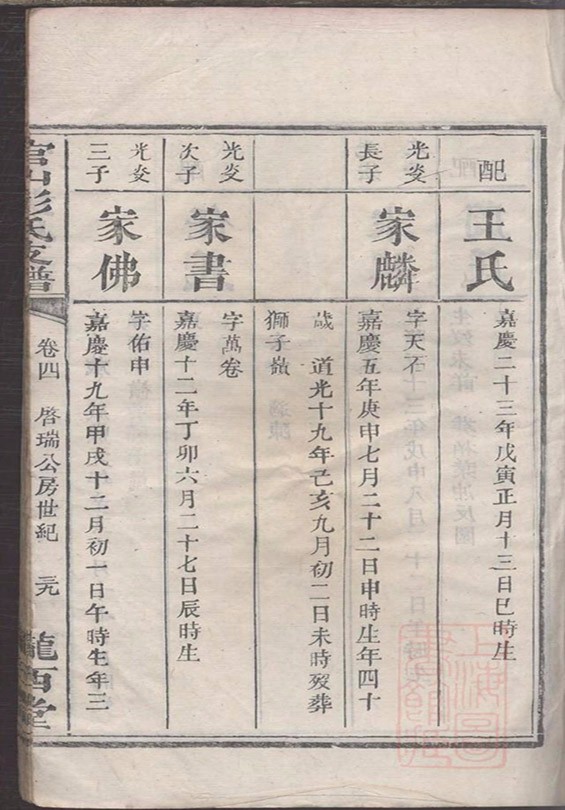 配
王氏
嘉慶二十三年戊寅正月十三日巳時生
光炎
長子
家麟
字天石
嘉慶五年庚申七月二十二日申時生年四十
歲 道光十九年己亥九月初二日未時歿葬
獅子嶺
光炎
次子
家書
字萬卷
嘉慶十二年丁卯六月二十七日辰時生
光炎
三子
家佛
字佑申
嘉慶十九年甲戌十二月初一日午時生年三
官山彭氏支譜
卷四 啓瑞公房世紀 三九 隴西堂